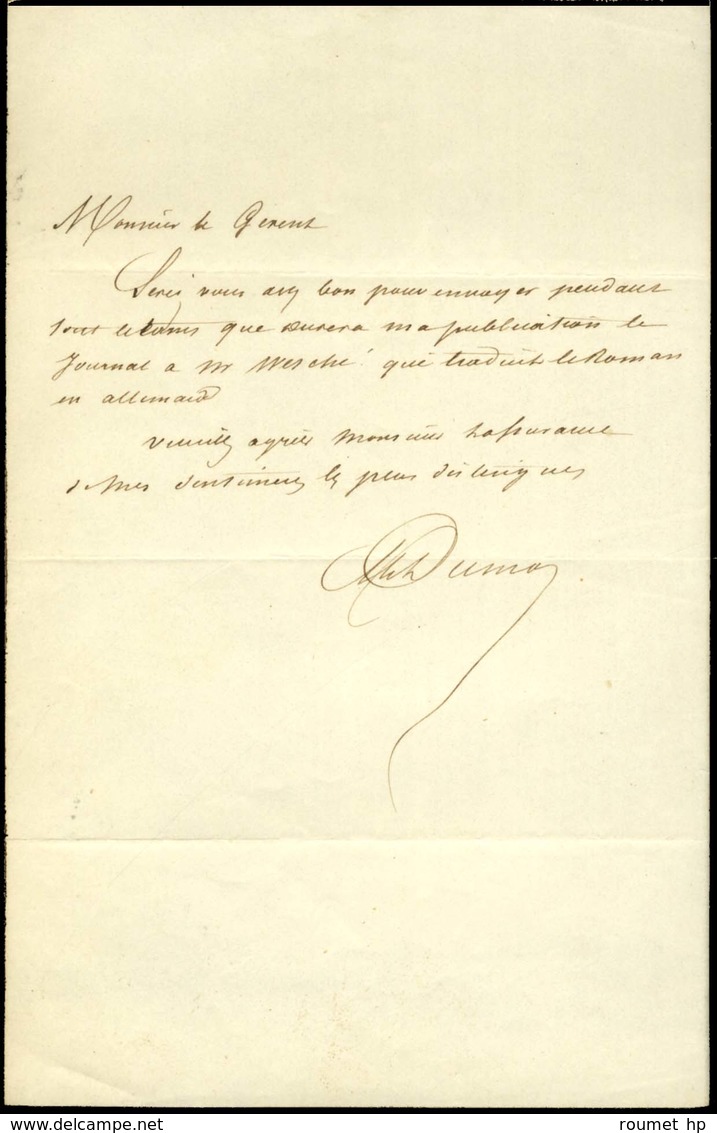 Monsieur le Gerent
Serez vous assez bon pour envoyer pendant
tout le tems que durera ma publication le
Journal a Mr Wesché qui traduit le Roman
en allemand
Veuillez agréer Monsieur l'assurance
de mes sentimens les plus distingués
Alex Dumas
delcampe.net
roumet hp